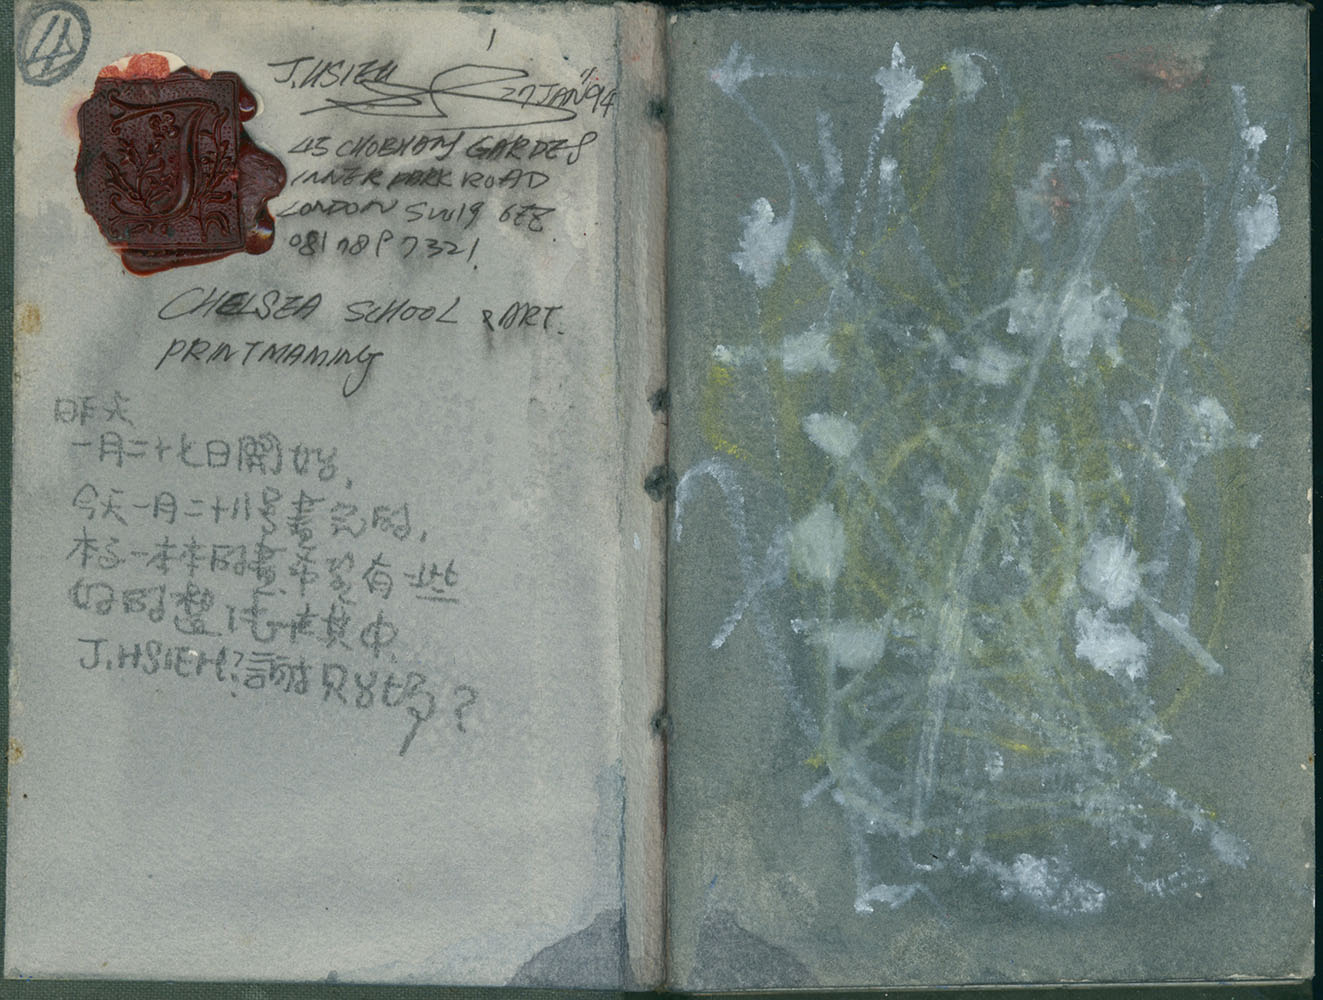 4
1
J
J. HSIEH
27 JAN '94
45 CHOBHAM GARDES
INNER PARK ROAD
LONDON SW19 6EZ
081 789 7321
CHELSEA SCHOOL & ART.
PRINTMAMING
昨天
一月二十七日開始,
今天一月二十八号書完的,
本子一本本的畫希望有一些
好的整化在其中.
J. HSIEH?